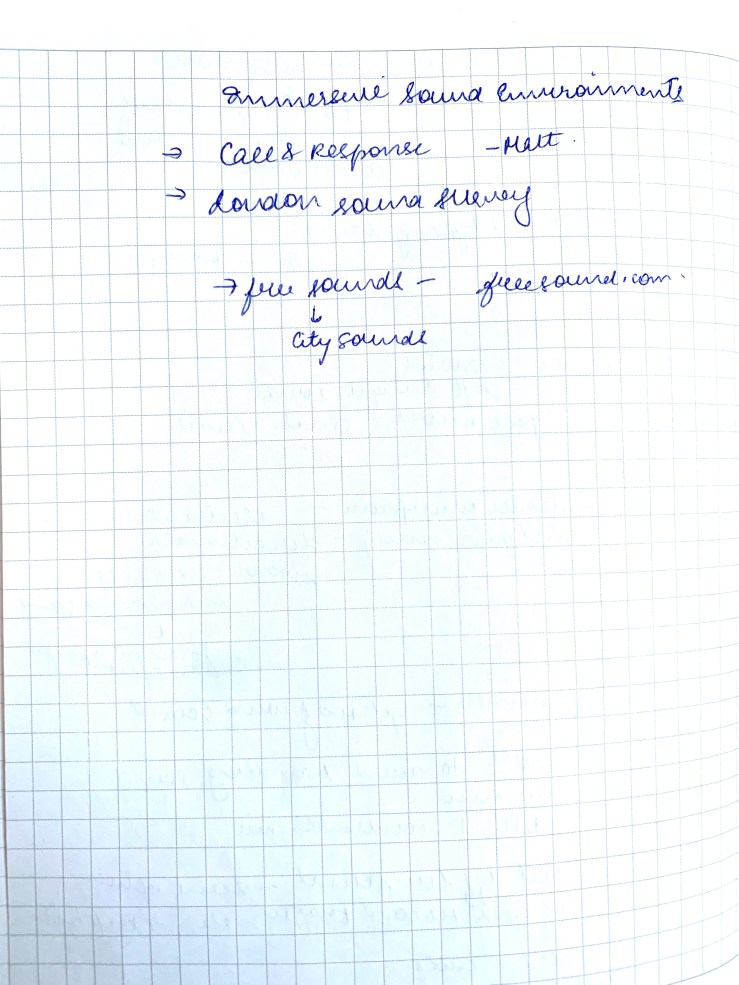 Immersive Sound Environments
→ Call & Response - Melt.
→ London sound survey
→ free sounds - freesound.com.
↓
City sounds